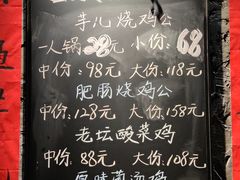 芋儿烧鸡公
一人锅28元 小份:68
中份:98元 大份:118元
肥肠烧鸡公
中份:128元 大份:158元
老坛酸菜鸡
中份:88元 大份:108元
原味菌汤鸡